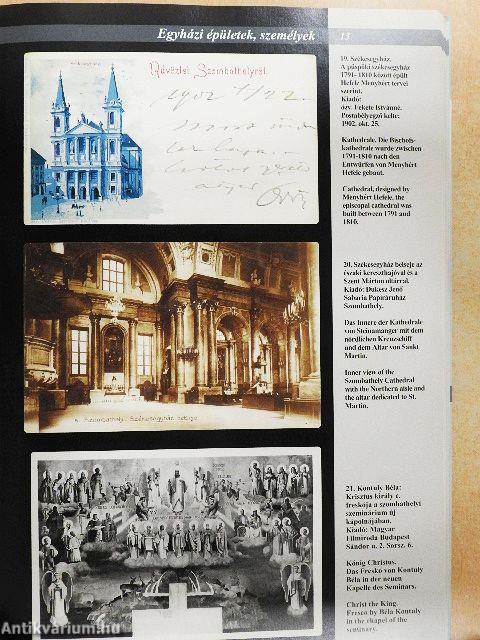 Egyházi épületek, személyek 13
Üdvözlet Szombathelyről.
1902
19. Székesegyház.
A püspöki székesegyház
1791- 1810 között épült
Hefele Menyhért tervei
szerint.
Kiadó:
özv. Fekete Istvánné.
Postabélyegző kelte:
1902. okt. 25.
Kathedrale. Die Bischofs-
kathedrale wurde zwischen
1791-1810 nach den
Entwürfen von Menyhért
Hefele gebaut.
Cathedral, designed by
Menyhért Hefele, the
episcopal cathedral was
built between 1791 and
1810.
20. Székesegyház belseje az
északi kereszthajóval és a
Szent Márton oltárral.
Kiadó: Dukesz Jenő
Sabaria Papíráruház
Szombathely.
Das Innere der Kathedrale
von Steinamanger mit dem
nördlichen Kreuzschiff
und dem Altar von Sankt
Martin.
Inner view of the
Szombathely Cathedral
with the Northern aisle and
the altar dedicated to St.
Martin.
Szombathely. Székesegyház belseje
21. Kontuly Béla:
Krisztus király c.
freskója a szombathelyi
szeminárium új
kápolnájában.
Kiadó: Magyar
Filmiroda Budapest
Sándor u. 2. Sorsz. 6.
König Christus.
Das Fresko von Kontuly
Béla in der neuen
Kapelle des Seminars.
Christ the King.
Fresco by Béla Kontuly
in the chapel of the
seminary.
Antikvárium.hu